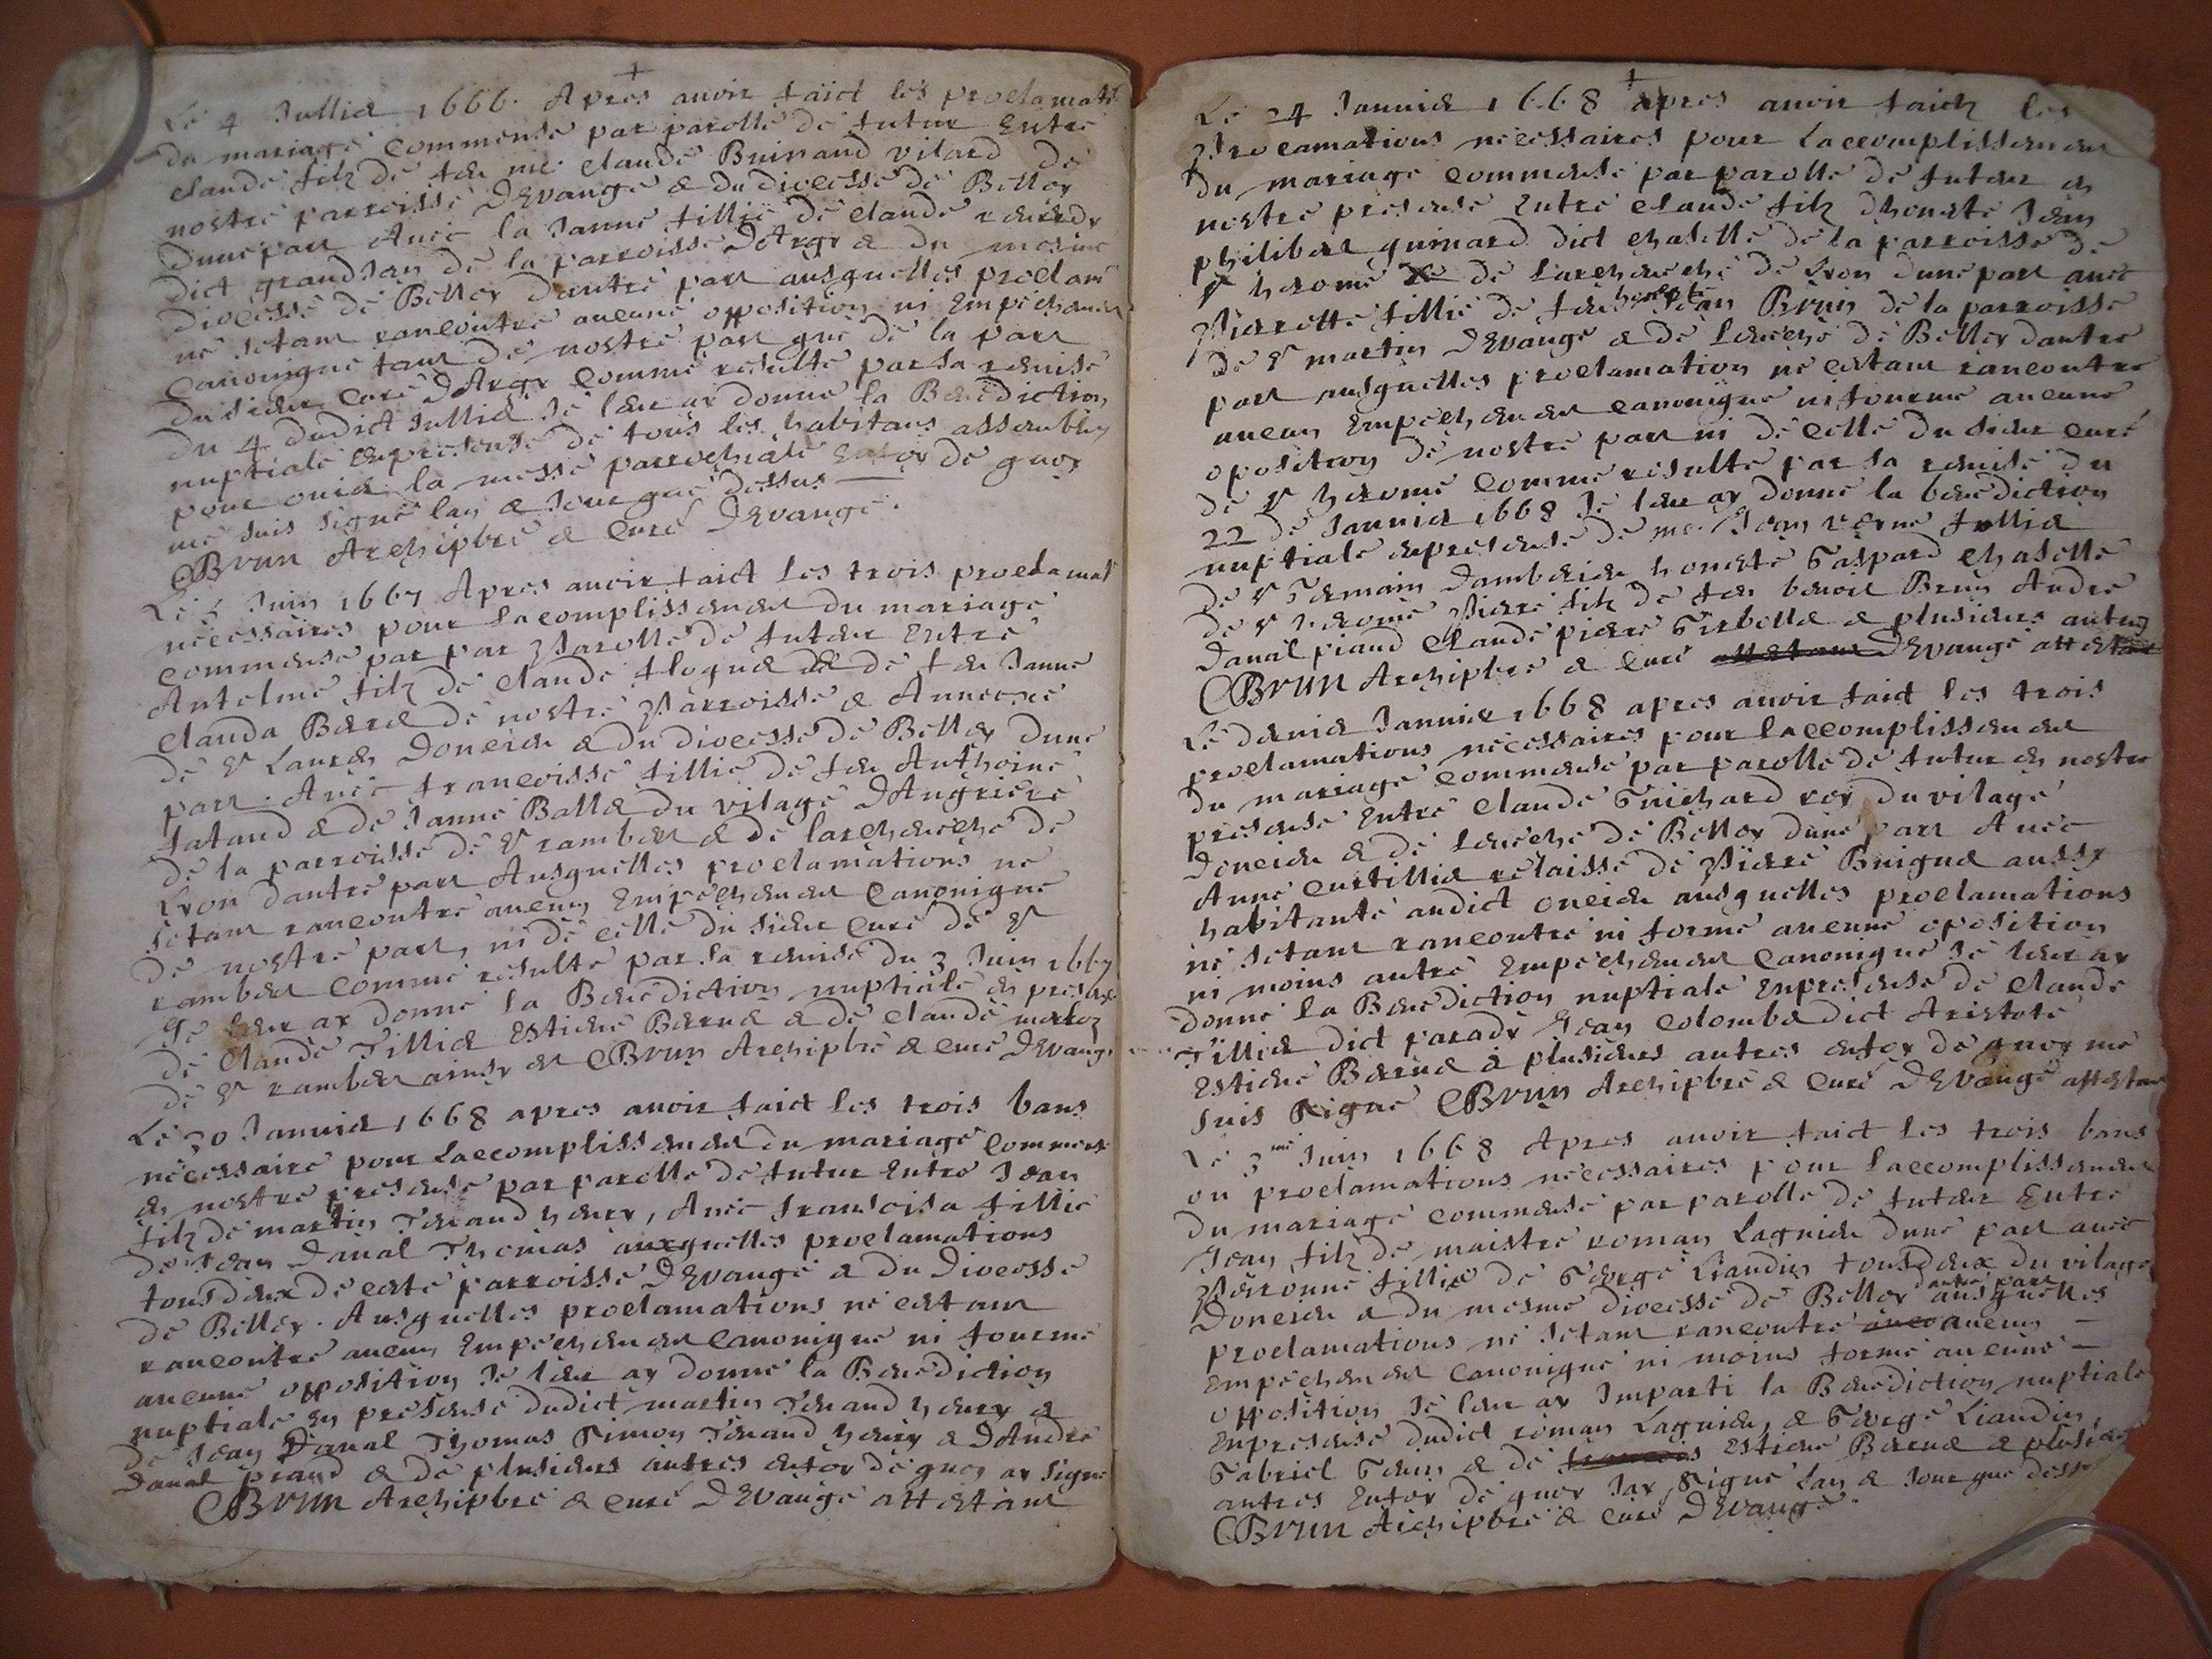 Le 4 Jullied 1666. Apres auoir faict les proclamat
du mariage commense par parolle de futur Entre
claude filz de feu me. claude Buinand vilard de
nostre parroisse DEvange & du diocesse de Belley
dune part Auec la Janne fillie de claude
dict grandJan de la parroisse DArgy & du mesme
diocesse de Belley dautre part ausquelles proclam
ne sétant rancontré aucune opposition ni Empechement
Canonique tant de nostre part que de la part
du sieur curé DArgy comme resulte par sa remise
du 4 dudict Jullied Je leur ay donné la Benediction
nuptiale Enpresense de tous les habitans assemblez
pour ouir la messe parrochiale Enfoy de quoy
me suis signé lan & Jour que dessus
Brun Archipbre & Curé DEvange.
Le 5 Juin 1667 Apres auoir faict les trois proclamat
necessaires pour lacomplissement du mariage
commense par par Parolle de futur Entre
Antelme filz de claude floqued & de feu Janne
clauda Bered de nostre Parroisse & Annecxe
de St Laurent Doncieu & du diocesse de Belley dune
part. Auec francoisse fillie de feu Anthoine
tatand & de Janne Balled du vilage DAngriere
de la parroisse de St rambert & de larcheueche de
Lyon dautre part Ausquelles proclamations ne
sétant rancontré aucun Empechement Canonique
de nostre part, ni de celle du sieur curé de St
rambert comme resulte par sa remise du 3 Juin 1667
Je leur ay donné la Benediction nuptiale en presense
de Claude Tillied Estiene Berned & de claude
de St rambert ainsy est Brun Archipbre & curé DEvange
Le 30 Januied 1668 apres auoir faict les trois bans
necessaire pour Laccomplissement du mariage commense
en nostre presense par parolle de futur Entre Jean
filz de martin Tenand henry, Auec fransoisa fillie
de Jean Daual Thomas auxquelles proclamations
tousdeux de ceste parroisse DEvange & du Diocesse
de Belley. Ausquelles proclamations ne cétant
rancontré aucun Empechement Canonique ni fourme
aucune opposition Je leur ay donné la Benediction
nuptiale En presense dudict martin Tenand henry &
de Jean Daual Thomas Simon Tenand henry & DAndre
Daual piand & de plusieurs autres enfoy de quoy ay signe
Brun Archipbre & curé DEvange attestant
Le 24 Januied 1668 apres auoir faict les
Procamations necessaires pour Laccomplissement
du mariage commense par parolle de futeur en
nostre presense Entre claude filz dhoneste Jean
philibert guinard dict chaselle de la parroisse de
St herome de Larcheueche de Lyon dune part auec
Pierrette fillie de feu honeste Jean Brun de la parroisse
de St martin DEvange & de Leueche de Belley dautre
part ausquelles proclamation ne cestant rancontré
aucun Empechement canonique ni fourme aucune
oposition de nostre part ni de celle du sieur curé
de St herome comme resulte par sa remise du
22 de Januied 1668 Je leur ay donné la benediction
nuptiale enpresense de me. Jean verne fullied
de St Germain Damberieu honeste Gaspard chaselle
de St herome Piere filz de feu benoit Brun Andre
Daual piand Claude piere Girbelled & plusieurs autres
Brun Archipbre & curé DEvange attestant
Le dernied Januied 1668 apres auoir faict les trois
proclamations necessaires pour Laccomplissement
du mariage commense par parolle de futur en nostre
presense Entre Claude Guichard roy du vilage
Doncieu & de Leueche de Belley dune part Auec
Anne curtillied relaisse de Piere Buigned aussy
habitante audict oncieu ausquelles proclamations
ne sétant rancontré ni formé aucune oposition
ni moins autre Empechement Canonique Je leur ay
donné la Benediction nuptiale Enpresense de claude
Tillied dict parady Jean colombed dict Aristote
Estiene Berned & plusieurs autres enfoy de quoy me
suis signé Brun Archipbre & curé DEvange attestant
Le 3me Juin 1668 Apres auoir faict les trois bans
ou proclamations necessaires pour laccomplissement
du mariage commense par parolle de futeur Entre
Jean filz de maistre roman Lagnieu dune part auec
Peronne fillie de George Liandin tousdeux du vilage
Doncieu & du mesme diocesse de Belley dautre part ausquelles
proclamations ne sétant rancontré aucun
Empechement canonique ni moins formé aucune
opposition Je leur ay Imparti la Benediction nuptiale
Enpresense dudict roman Lagnieu, & George Liandin,
Gabriel & de Estiene Berned & plusieurs
autres Enfoy de quoy Jay signé lan & Jour que dessus
Brun Archipbre & curé DEvange.